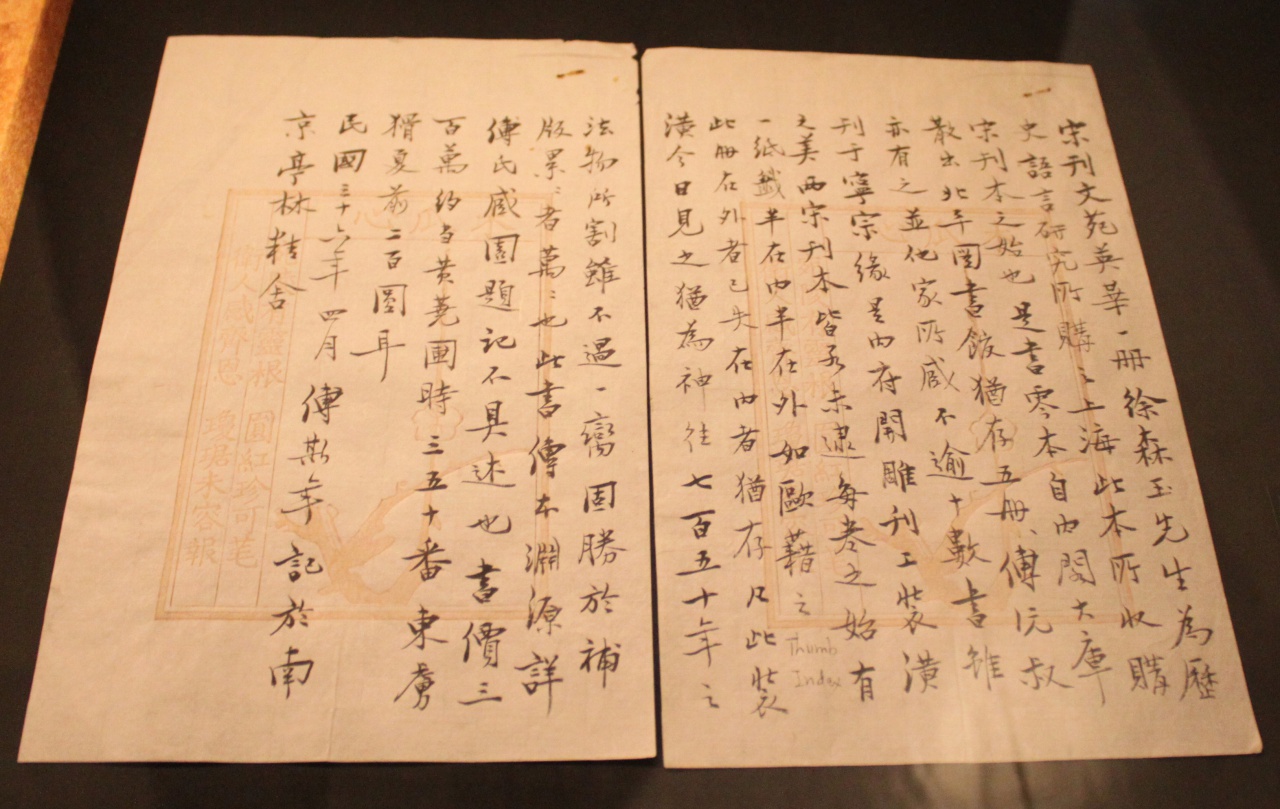 宋刊文苑英華一册徐森玉先生為歷
史語言研究所購之上海此本所收購
宋刊本之始也是書零本自內閣大庫
散出北平圖書館猶存五册、傅沅叔
亦有之並他家所藏不逾十數書雖
刊于寧宗緣是內府開雕刊工裝潢
之美兩宋刊本皆不逮每卷之始有
一紙籤半在內半在外如歐籍之
Thumb
Index
此册在外者已失在內者猶存凡此裝
潢今日見之猶為神往七百五十年之
法物所割雖不過一臠固勝於補
版累:者萬:也此書傳本淵源詳
傅氏藏園題記不具述也書價三
百萬約當黃蕘圃時三五十番東虜
猾夏前二百圓耳
民國三十六年四月傅斯年記於南
京亭林精舍
圓紅珍可
瓊琚未容報